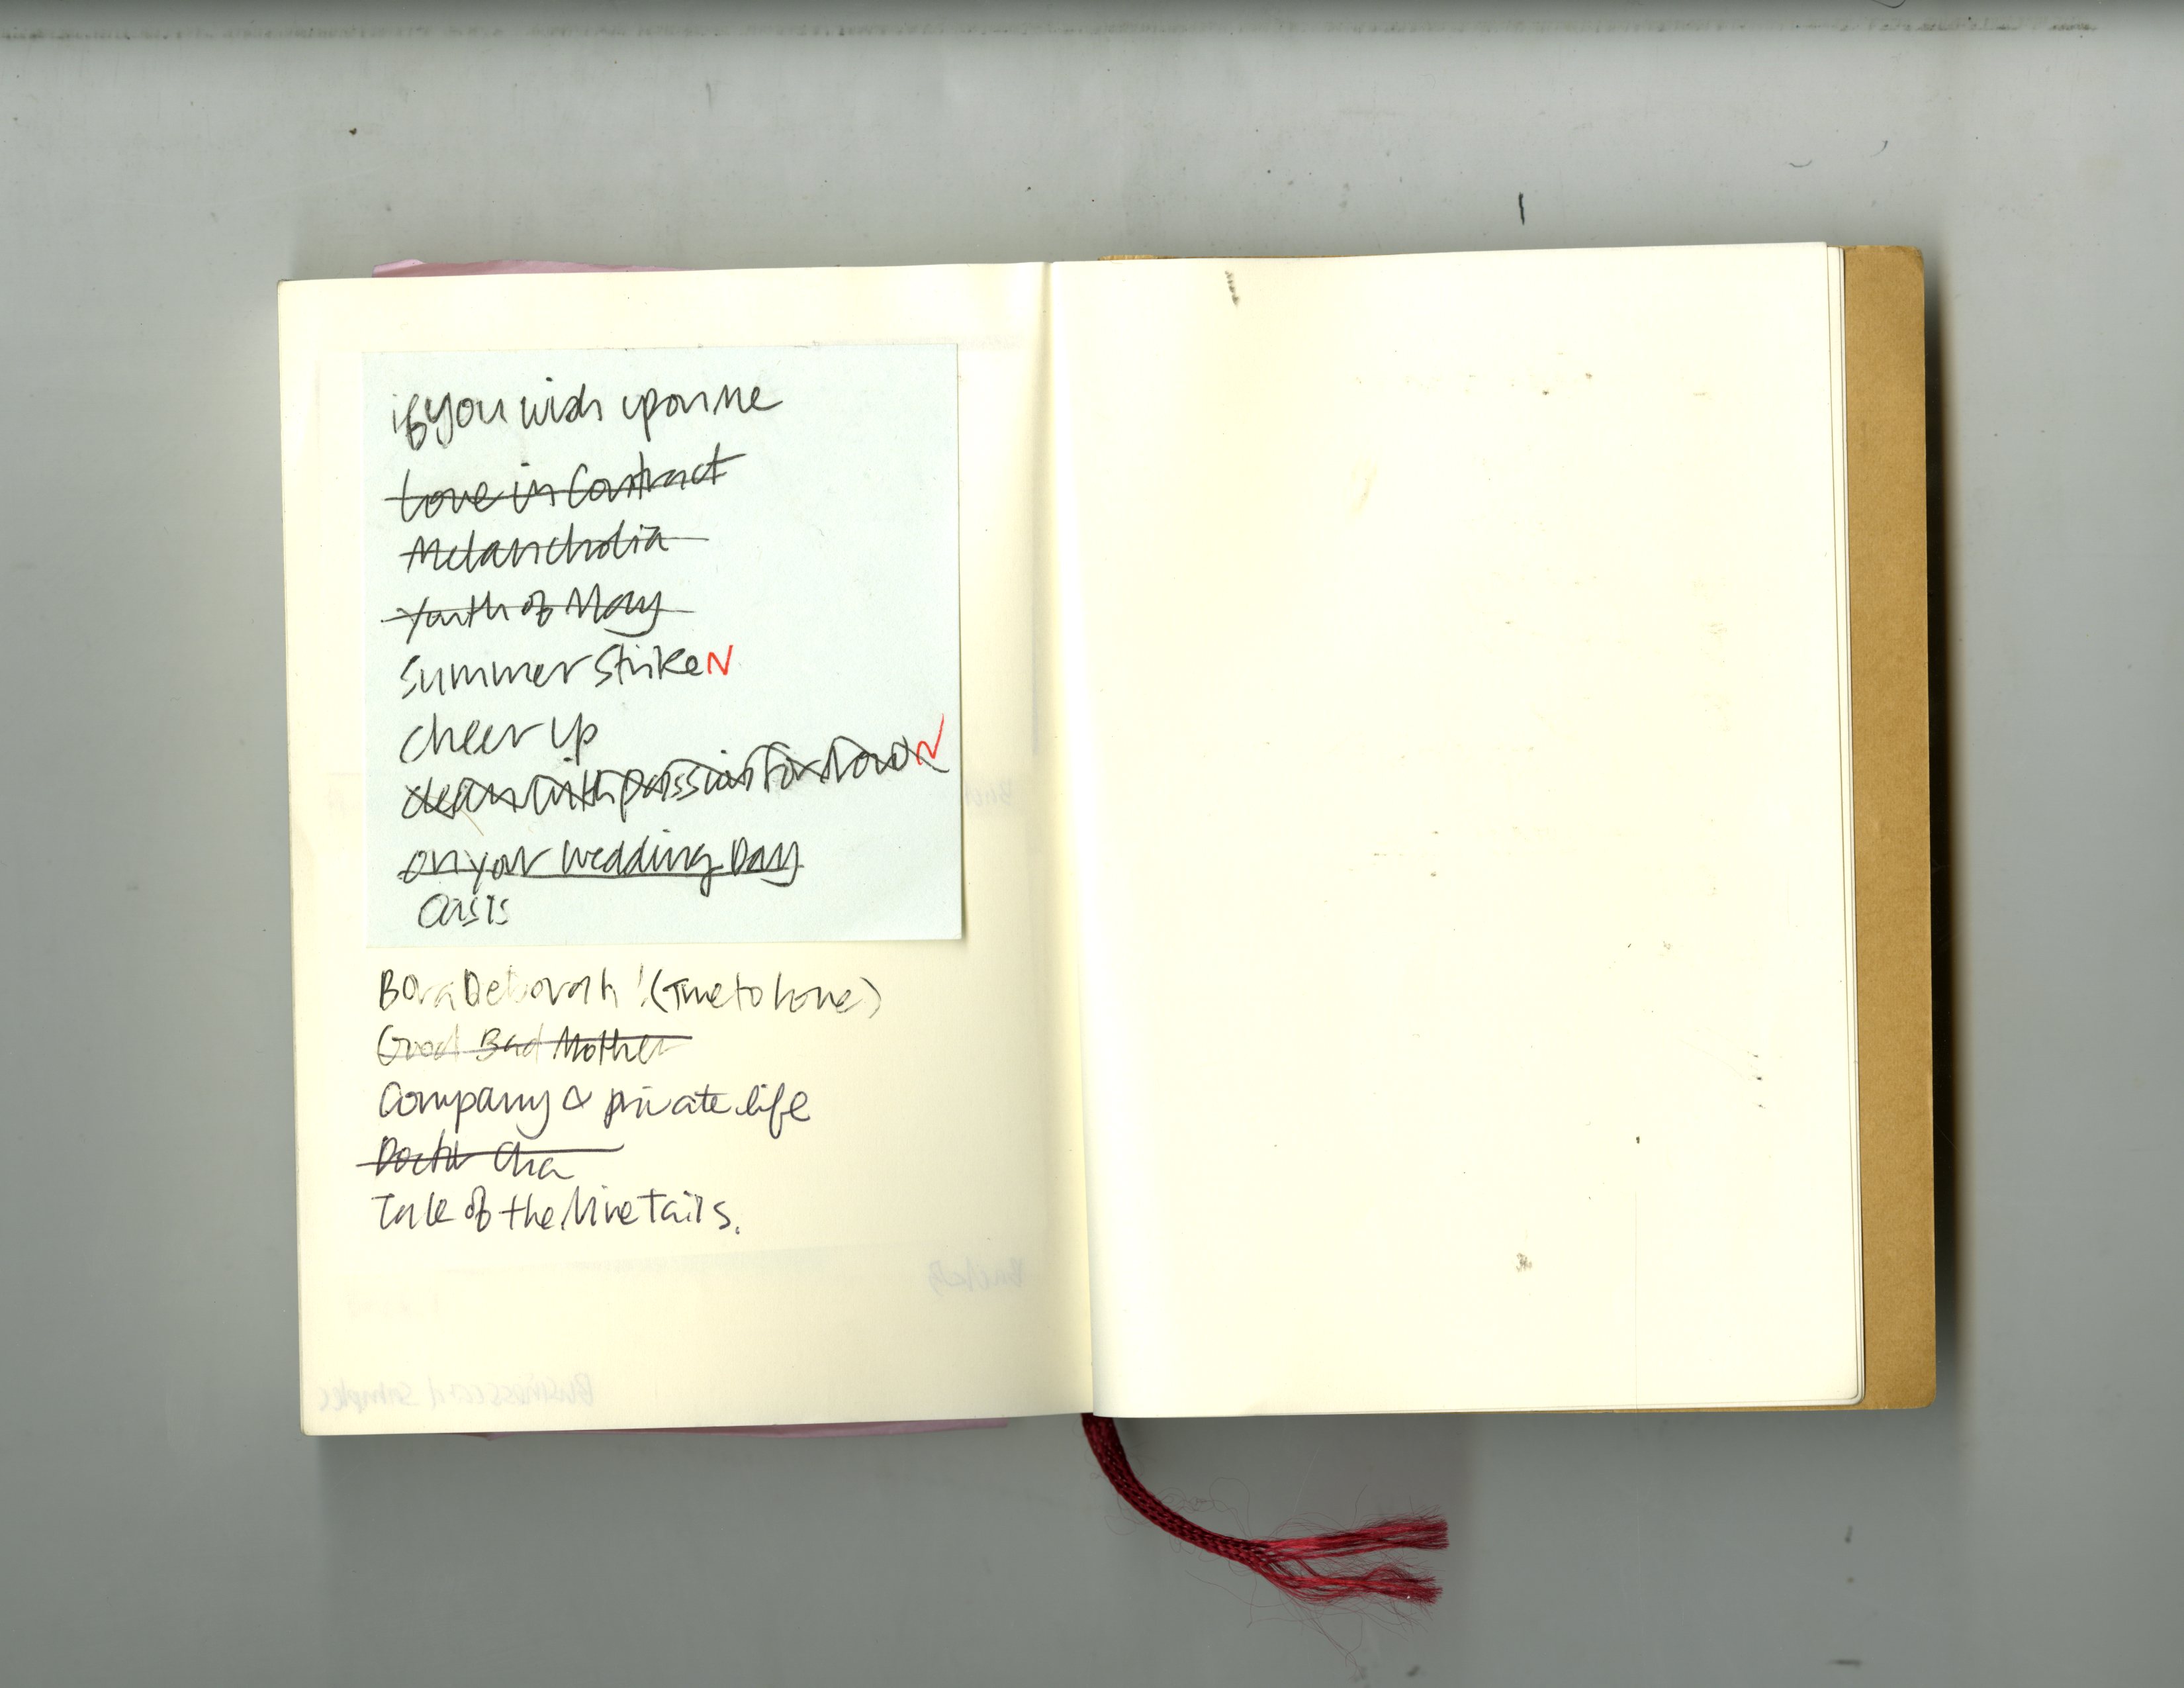 if you wish upon me
Love in Contract
Melancholia
Youth of May
Summer Strike N
cheer up
clean with passion for now N
on your wedding Day
Oasis
Bora Deborah! (True to Love)
Good Bad Mother
Company & private life
Doctor Cha
Tale of the Nine Tails.
Business card samples